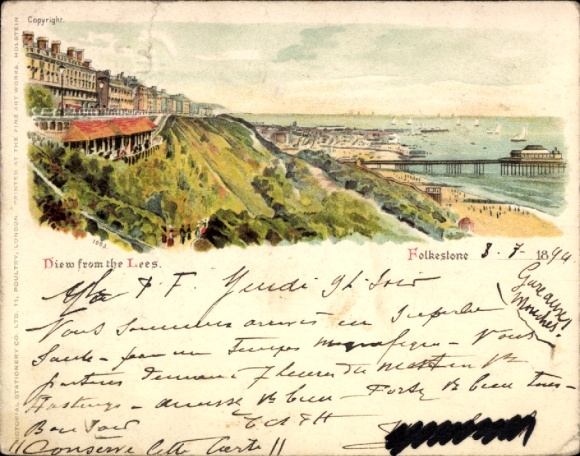 Copyright.
PICTORIAL STATIONERY CO. LTD. 11, POULTRY, LONDON. PRINTED AT THE FINE ART WORKS, HOLSTEIN
1003
View from the Lees.
Folkestone 3-7-189
Gare aux
Mouches!
F. Jeudi 9h. Soir
Nous sommes arrivés en superbe
Santé - par un temps magnifique - Nous
partirons demain 7 heures du matin
Hastings - amuse toi bien - Porte toi bien
Bon Soir
"Conserve cette Carte"